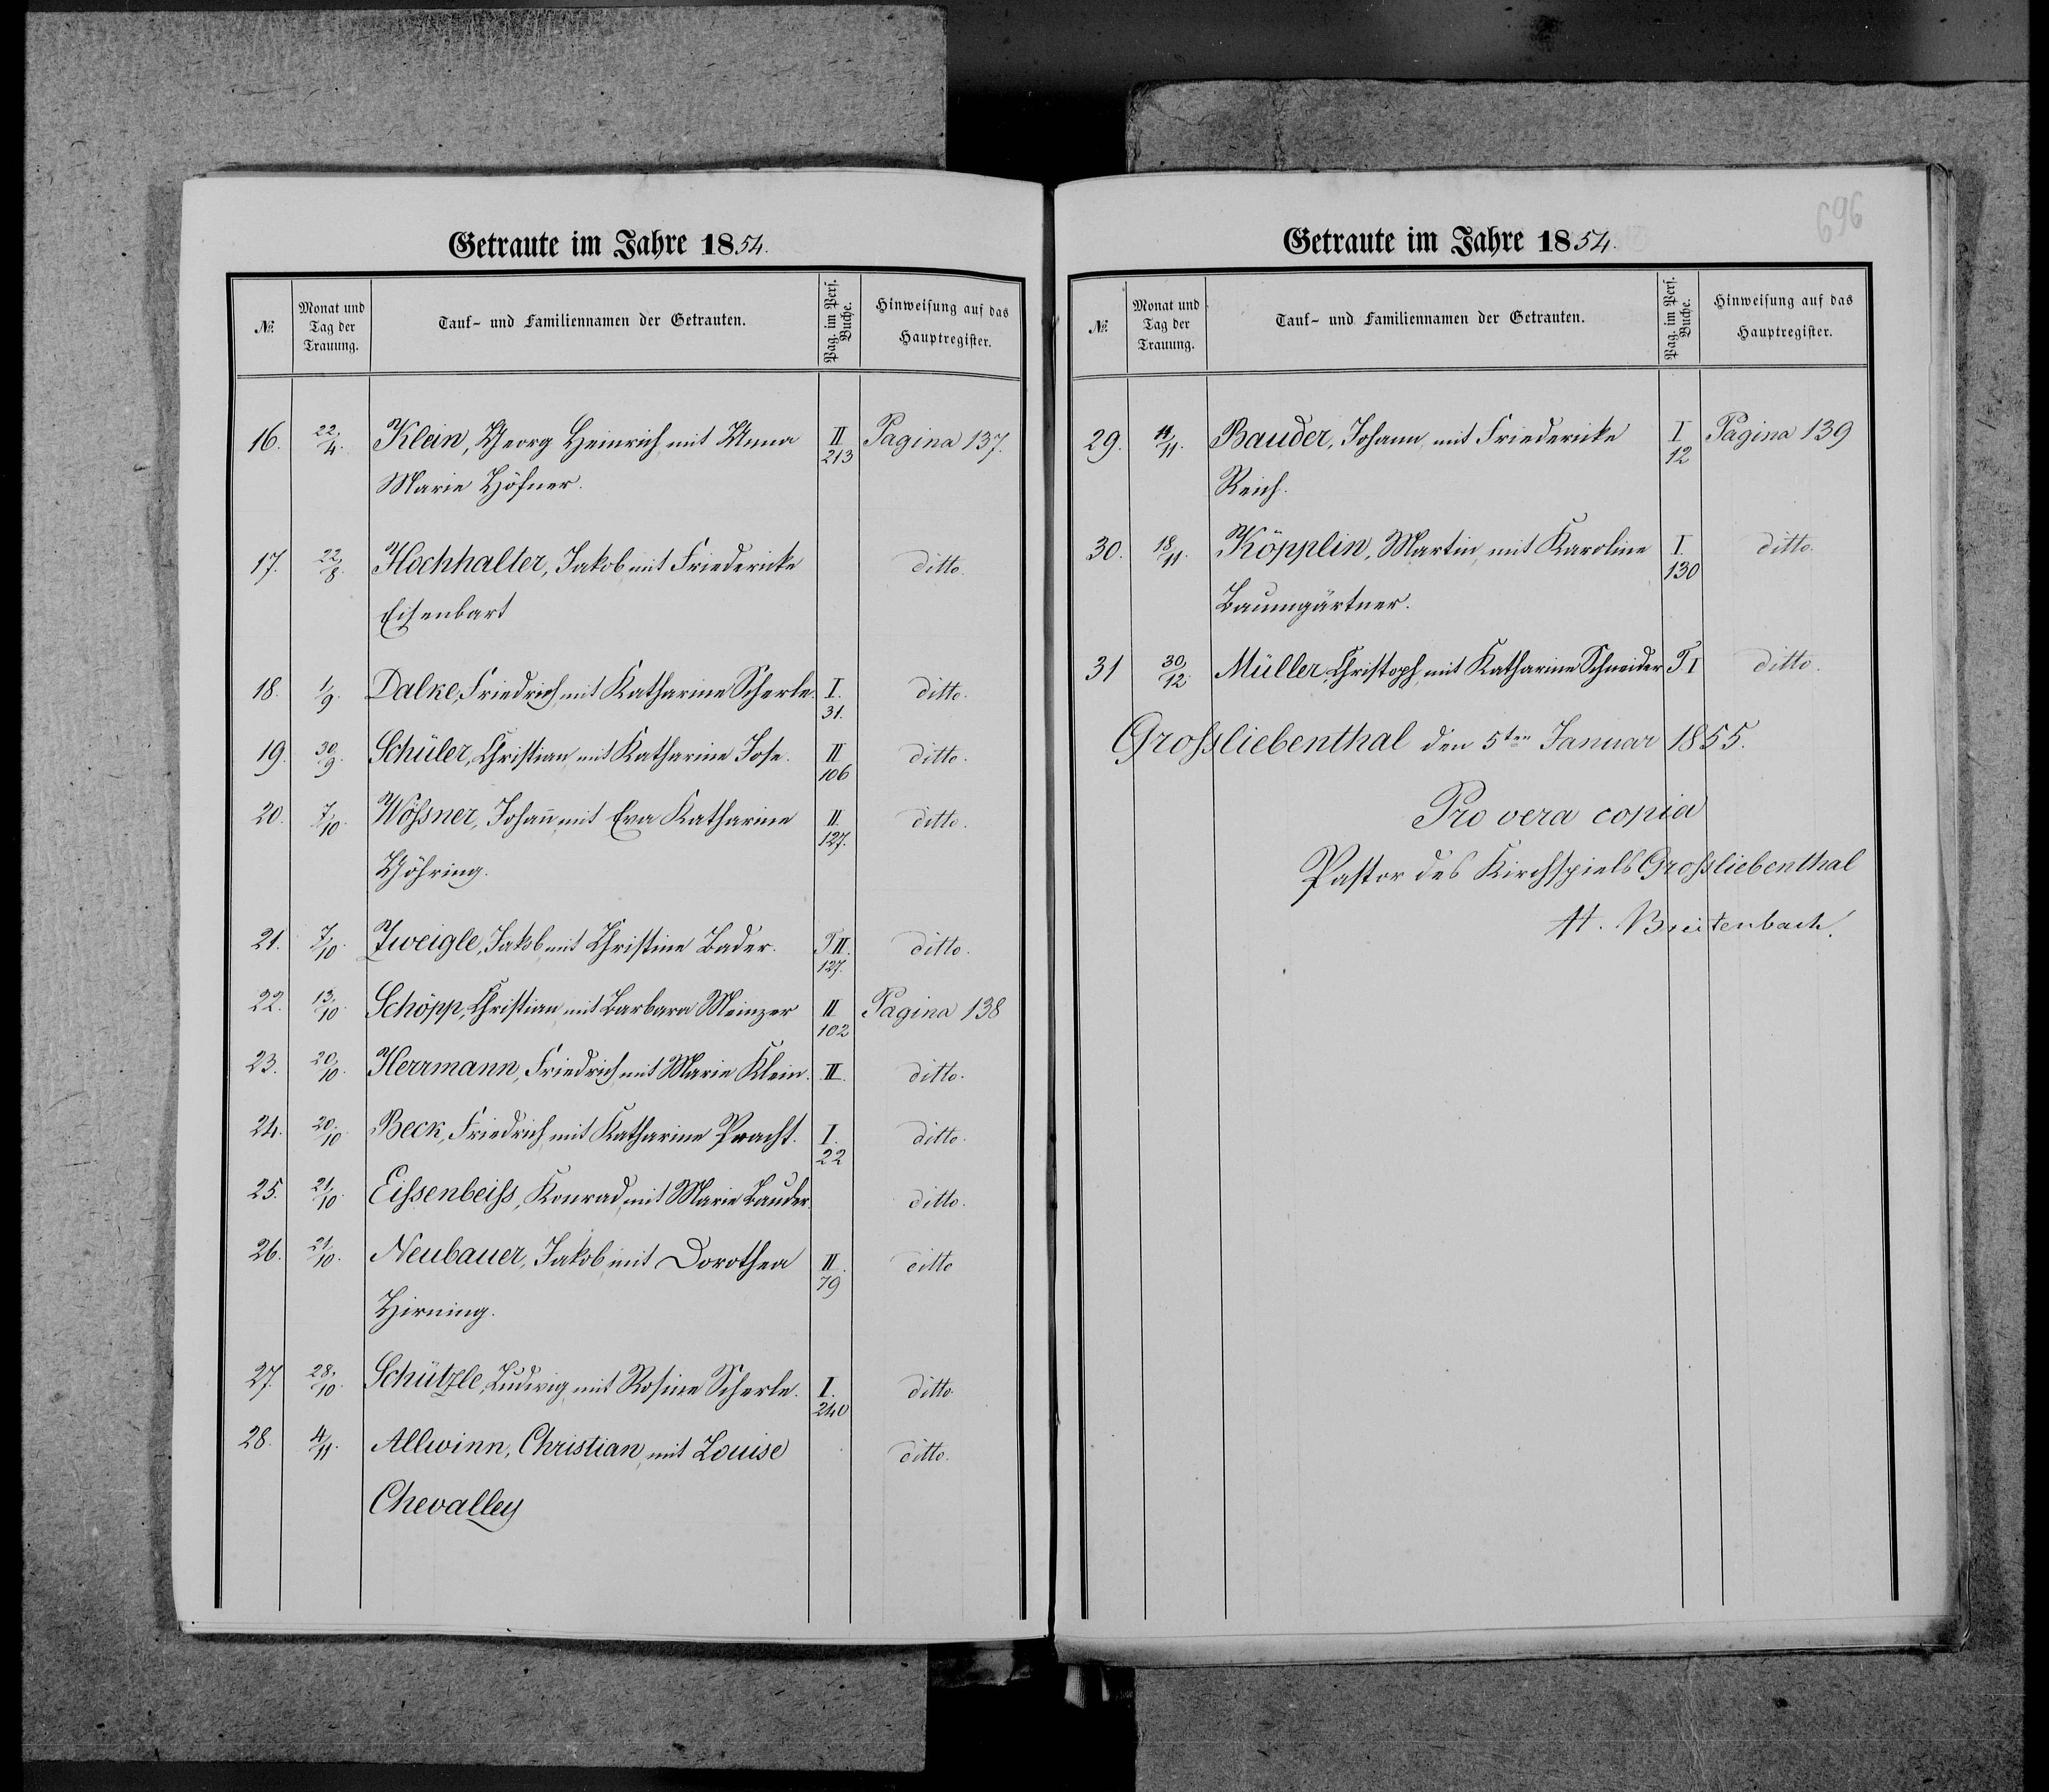 Getraute im Jahre 1854.
№ Monat und Tag der Trauung. Tauf- und Familiennamen der Getrauten. Pag. im Pers. Buche. Hinweisung auf das Hauptregister.
16. 22/4. Klein, Georg Heinrich mit Anna II 213 Pagina 137.
Marie Höfner.
17. 22/8. Hochhalter, Jakob mit Friedericke ditto.
Eisenbart
18. 1/9. Dalke, Friedrich mit Katharine Scherle. I. 31. ditto.
19. 30/9. Schüler, Christian mit Katharine Jose. II 106 ditto.
20. 7/10. Wößner, Johan̅ mit Eva Katharine II. 127. ditto.
Göhring.
21. 7/10. Zweigle, Jakob mit Christine Bader. T II. 127. ditto.
22. 13/10. Schöpp, Christian mit Barbara Meinzer II 102 Pagina 138
23. 20/10. Herrmann, Friedrich mit Marie Klein. II. ditto.
24. 20/10. Beck, Friedrich mit Katharine Pracht. I. 22 ditto.
25. 21/10. Eißenbeiß, Konrad mit Marie Bauder. ditto.
26. 21/10. Neubauer, Jakob mit Dorothea II. 79 ditto
Hirning.
27. 28/10. Schützle, Ludwig mit Rosine Scherle. I. 240 ditto.
28. 4/11. Allwinn, Christian mit Louise ditto.
Chevalley
696
Getraute im Jahre 1854.
№ Monat und Tag der Trauung. Tauf- und Familiennamen der Getrauten. Pag. im Pers. Buche. Hinweisung auf das Hauptregister.
29. /11. Bauder, Johann mit Friedericke I 12 Pagina 139
Reich.
30. 18/11. Köpplin, Martin mit Karoline I. 130 ditto.
Baumgärtner.
31 30/12. Müller, Christoph mit Katharine Schneider T I ditto.
Großliebenthal den 5ten Januar 1855.
Pro vera copia
Pastor des Kirchspiels Großliebenthal
Breitenbach.